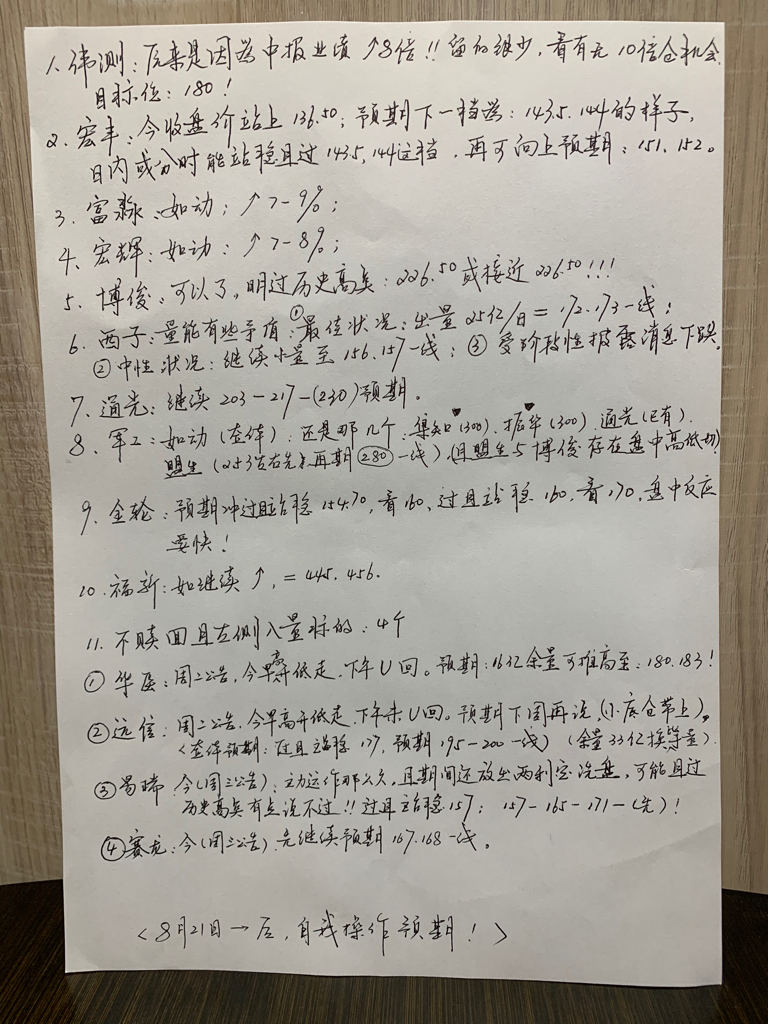 1、伟测:原来是因为中报业绩↑8倍!!留的很少,看有无10倍仓机会.
目标位:180!
2、宏丰:今收盘价站上136.50;预期下一档为:143.5.144的样子,
日内或分时能站稳且过143.5,144这档,再可向上预期:151.152。
3、富淼:如动:↑7-9%;
4、宏辉:如动:↑7-8%;
5、博俊:可以了,明过历史高点:226.50或接近226.50!!!
6、西子:量能有些矛盾:①最佳状况:出量25亿/日=172.173一线;
②中性状况:继续小量至156.157一线;③受阶段性披露消息下跌.
7、通光:继续203-217-(230)预期。
8、军工:如动(查伟):还是那几个:集知(300).振华(300).通光(已有).
盟生(253左右先)再期280一线).(且盟生与博俊存在盘中高低切)
9、金轮:预期冲过且站稳154.70,看160、过且站稳160,看170,盘中反应
要快!
10.福新:如继续↑,=445.456.
11.不赎回且左侧入量标的:4个
①华医:周二公告,今早高开低走,下午U回。预期:16亿余量可推高至:180.183!
②远信:周二公告.今早高开低走,下午未U回。预期下周再说,(小底仓带上)。
<查伟预期:过且站稳177,预期195-200一线>(余量33亿换等量).
③蒂:今(周三公告):主力运作那么久,且期间还放出两利空洗盘,可能且过
历史高点有点说不过!!过且站稳157:157-165-171-(先)!
④赛龙:今(周三公告).先继续预期167.168一线。
<8月21日一后,自我操作预期!>